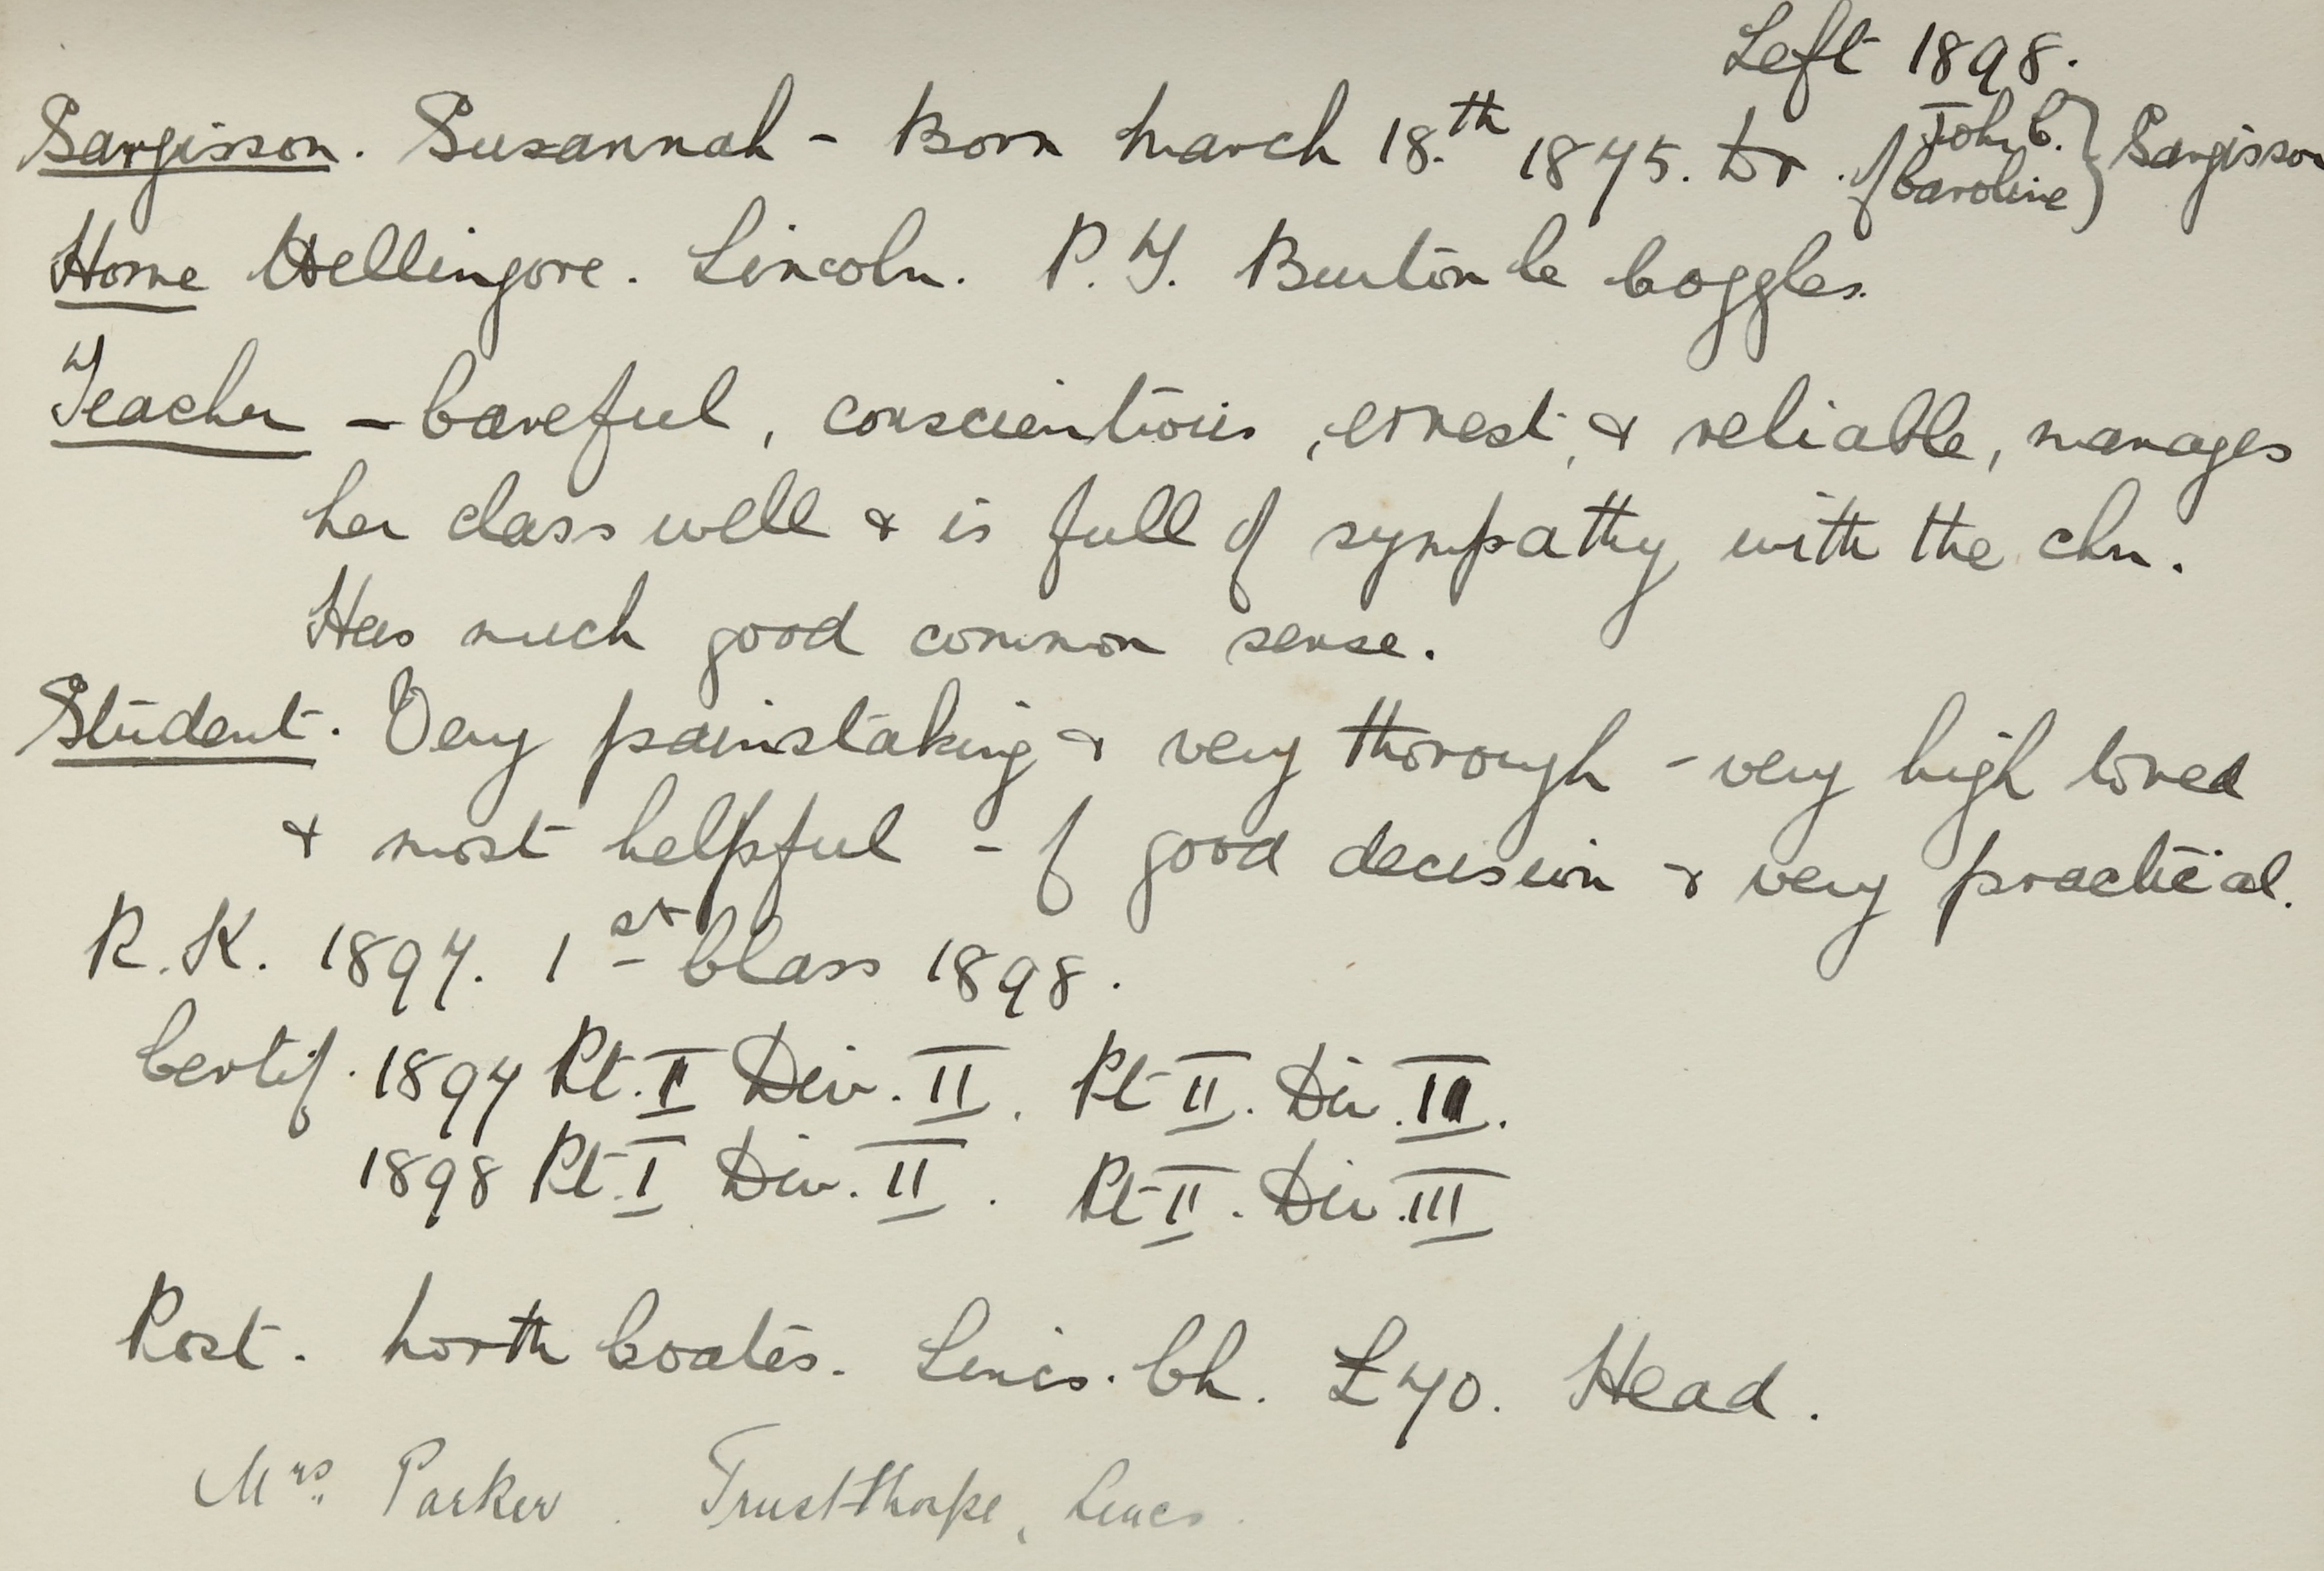 Left 1898.
Sargisson. Susannah - Born March 18.th 1875. Dr. of John C. } Sargisson
Caroline
Home Wellingore. Lincoln. P.T. Burton le Coggles.
Teacher - Careful, conscientious, ernest, & reliable, manages
her class well & is full of sympathy with the chn.
Has much good common sense.
Student. Very painstaking & very thorough - very high toned
& most helpful - of good decision & very practical.
R.K. 1897. 1st Class 1898.
Certif. 1897 Pt. I Div. II. Pt II. Div. III.
1898 Pt. I Div. II. Pt II. Div. III
Post. North Coates. Lincs. Ch. £70. Head.
Mrs. Parker. Trustthorpe, Lincs.